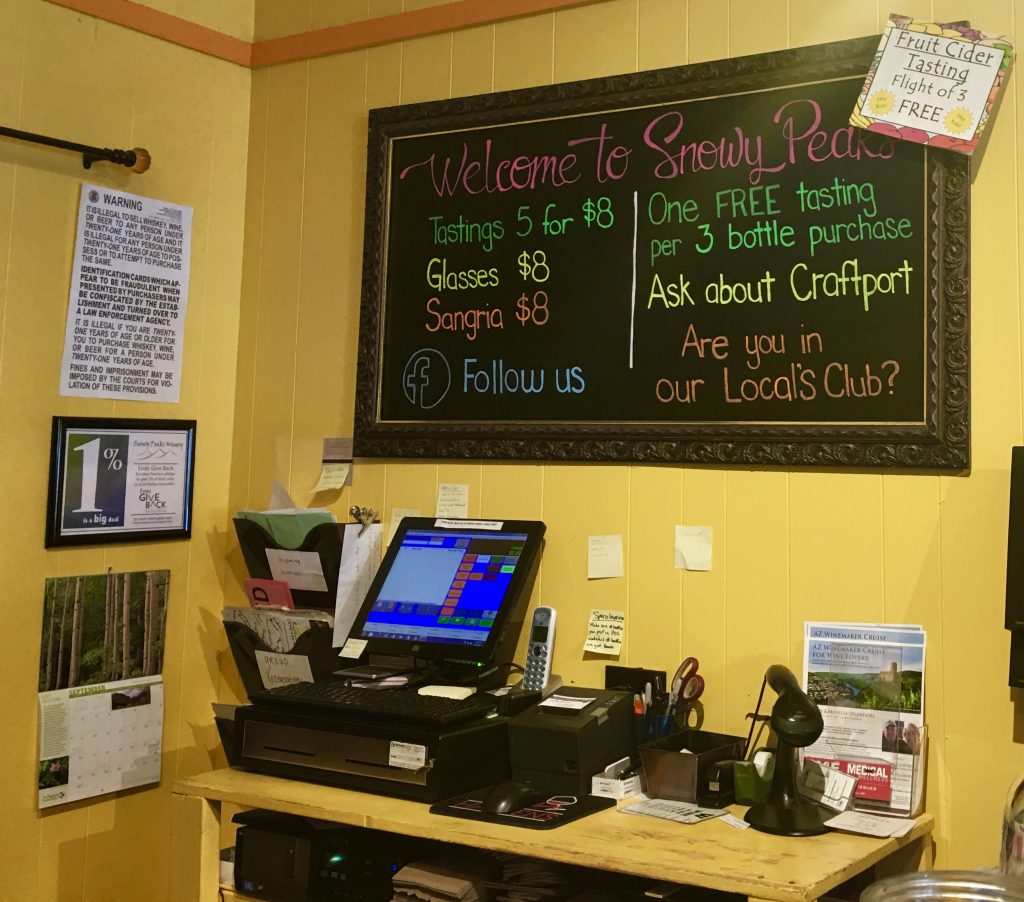 Fruit Cider
Tasting
Flight of 3
FREE
Welcome to Snowy Peaks
Tastings 5 for $8
Glasses $8
Sangria $8
Follow us
One FREE tasting
per 3 bottle purchase
Ask about Craftport
Are you in
our Local's Club?
WARNING
IT IS ILLEGAL TO SELL WHISKEY, WINE,
OR BEER TO ANY PERSON UNDER
TWENTY-ONE YEARS OF AGE AND IT
IS ILLEGAL FOR ANY PERSON UNDER
TWENTY-ONE YEARS OF AGE TO POS-
SESS OR TO ATTEMPT TO PURCHASE
THE SAME.
IDENTIFICATION CARDS WHICH AP-
PEAR TO BE FRAUDULENT WHEN
PRESENTED BY PURCHASERS MAY
BE CONFISCATED BY THE ESTAB-
LISHMENT AND TURNED OVER TO
A LAW ENFORCEMENT AGENCY.
IT IS ILLEGAL IF YOU ARE TWENTY-
ONE YEARS OF AGE OR OLDER FOR
YOU TO PURCHASE WHISKEY, WINE,
OR BEER FOR A PERSON UNDER
TWENTY-ONE YEARS OF AGE.
FINES AND IMPRISONMENT MAY BE
IMPOSED BY THE COURTS FOR VIO-
LATION OF THESE PROVISIONS.
1%
is a big deal
Snowy Peaks Winery
Estes Give Back
Estes
GIVE
BACK
SEPTEMBER
Incoming
Invoices
GROUP
Reservation
D
AZ WINEMAKER CRUISE
AZ WINEMAKER CRUISE
FOR WINE LOVERS
MEDICAL